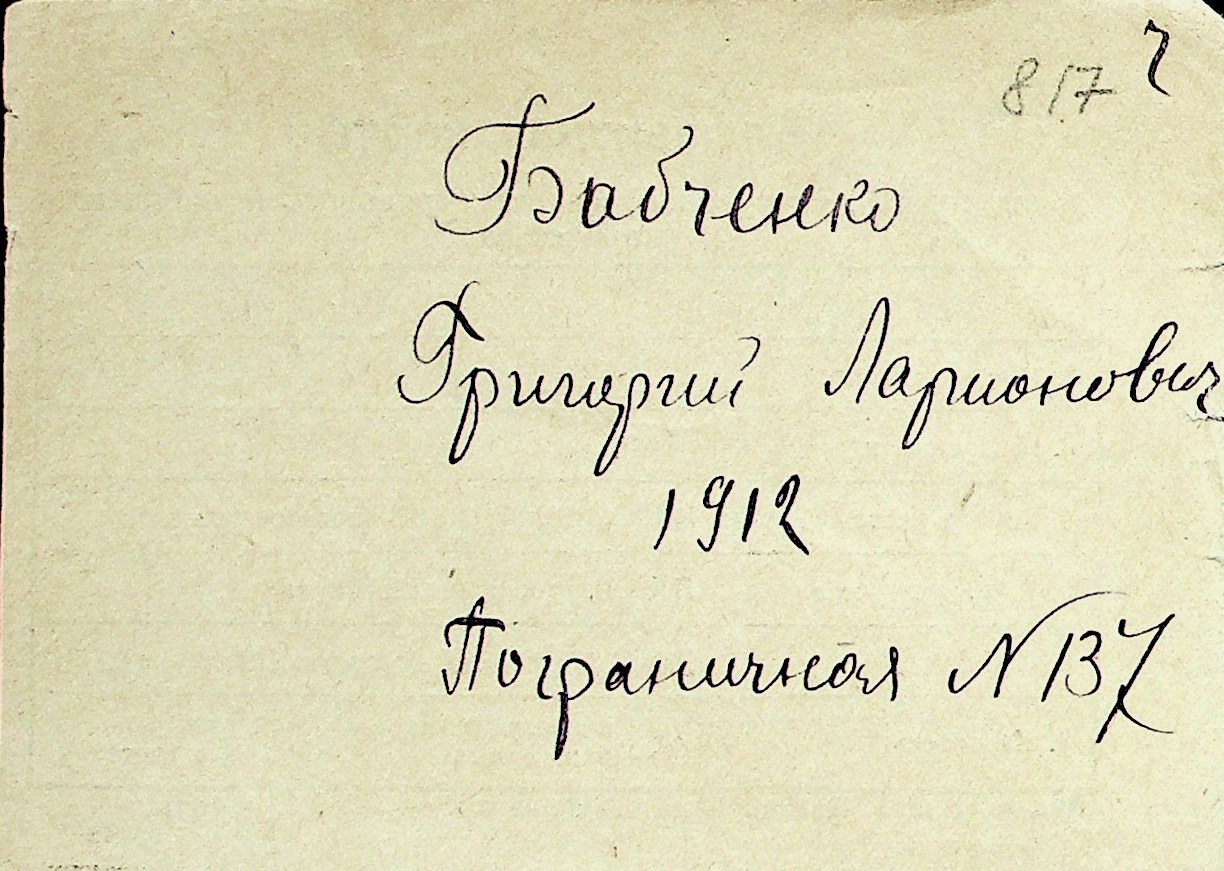 817 ч
Бабченко
Григорий Ларионович
1912
Пограничная N 137